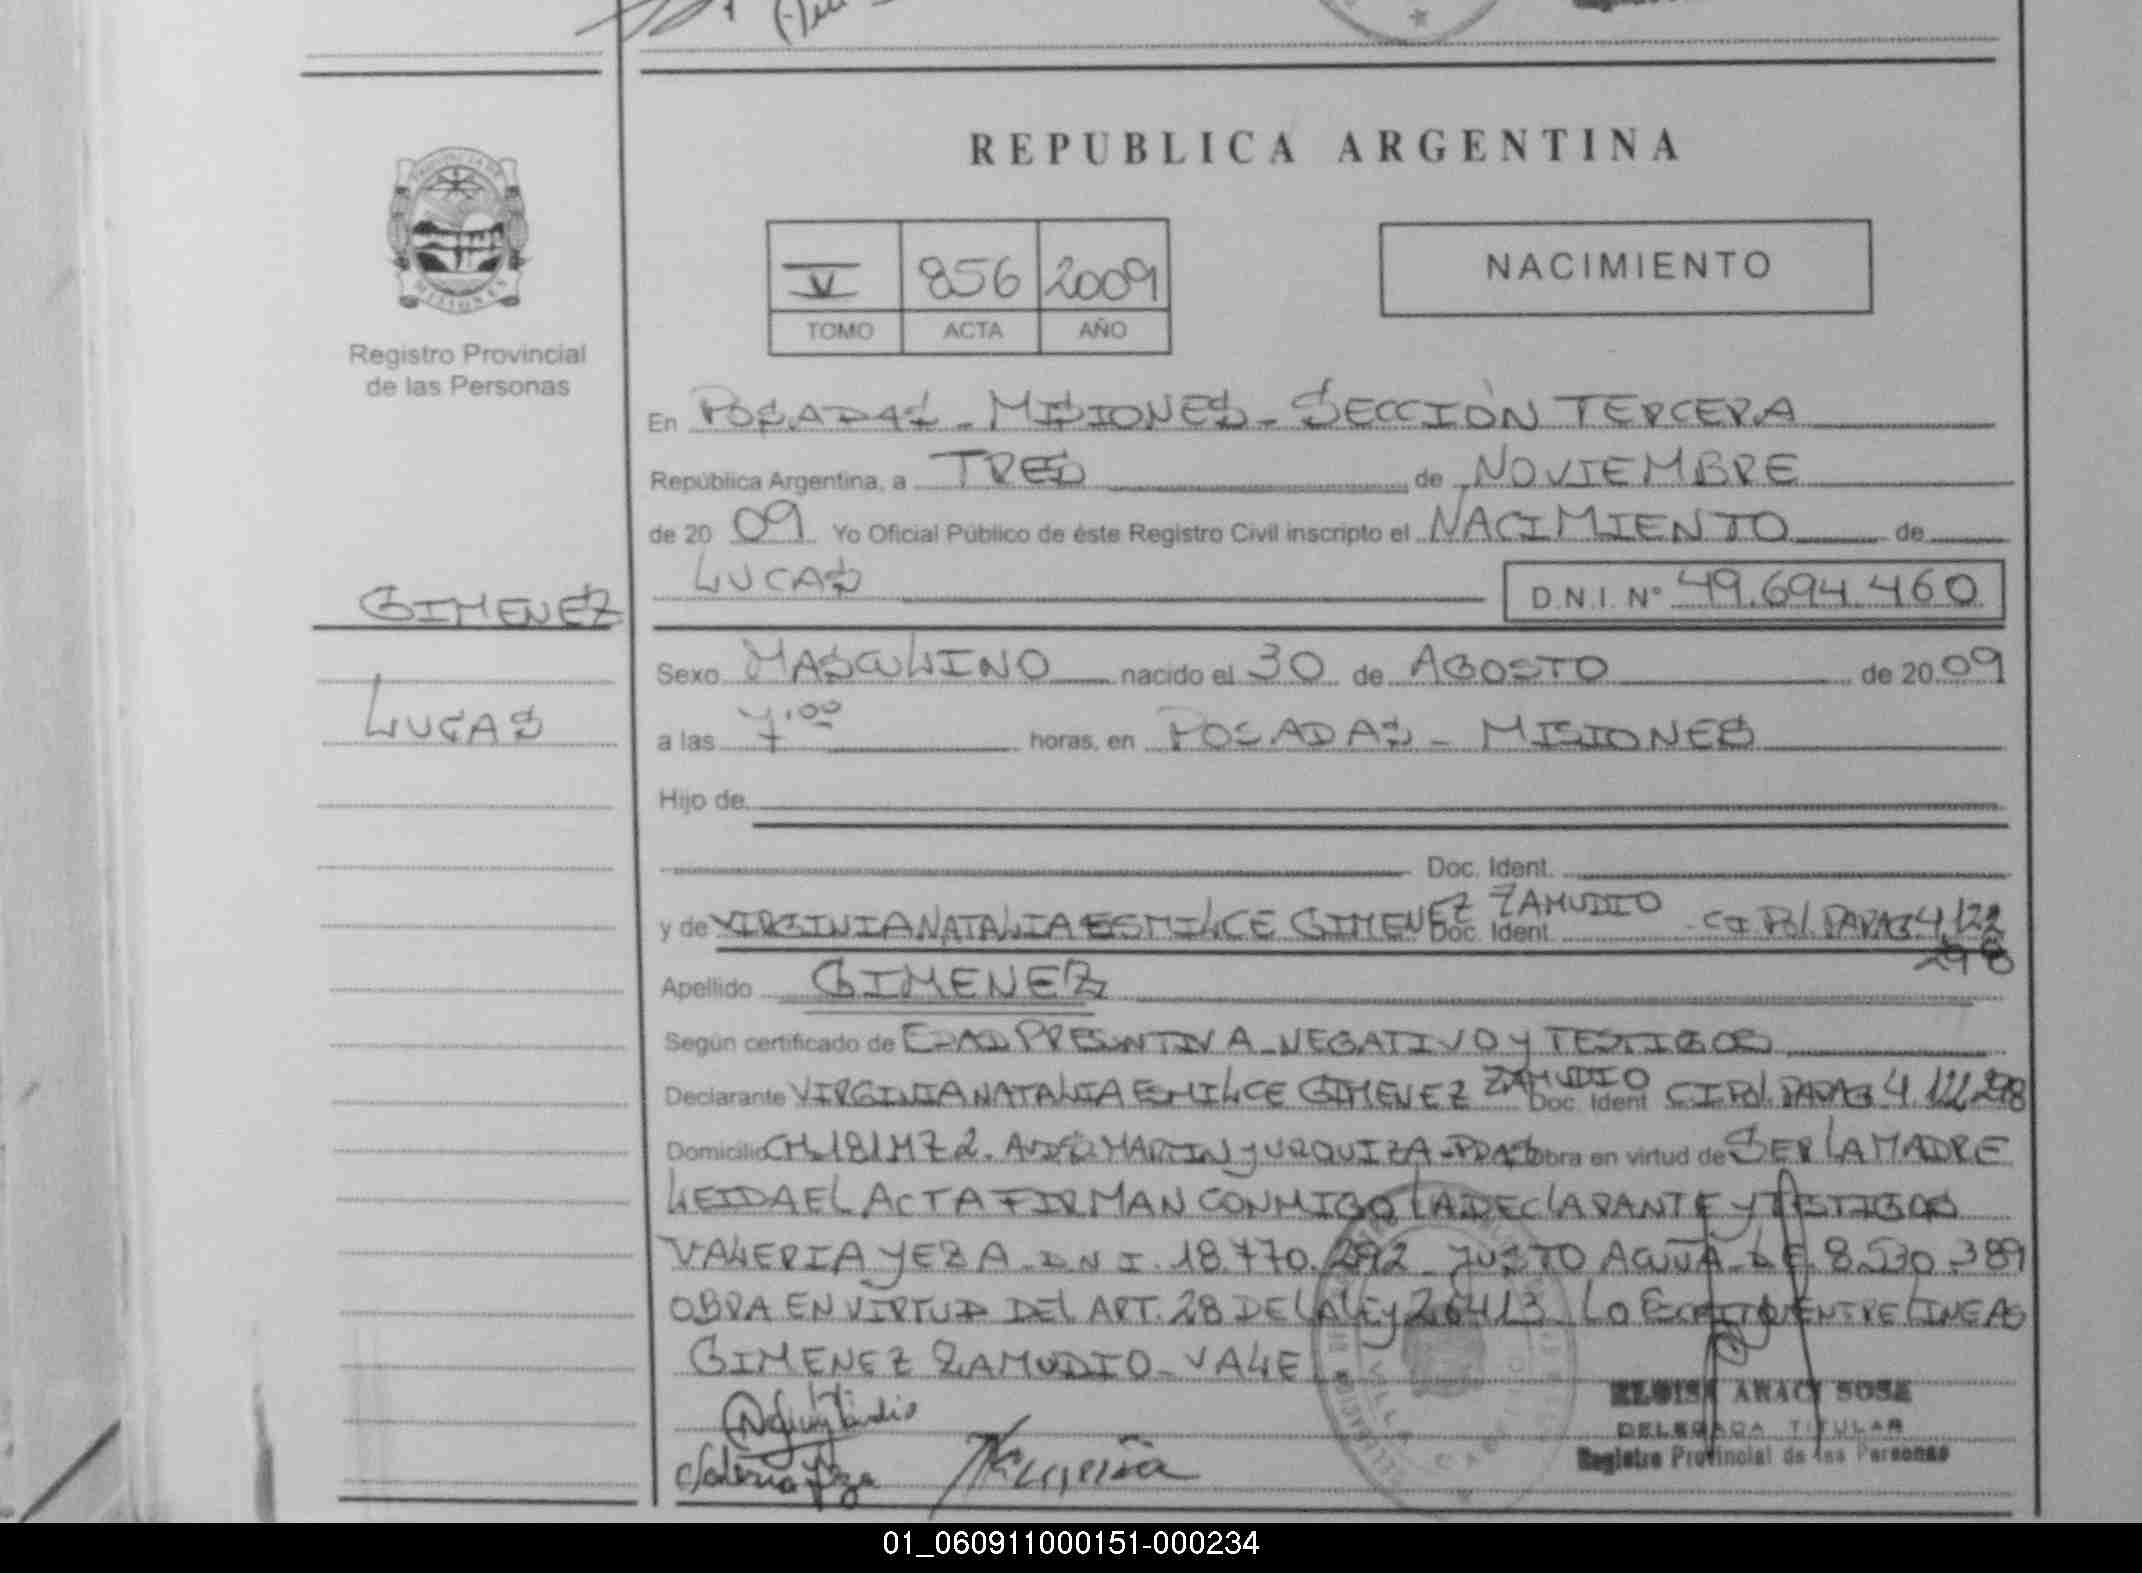 REPUBLICA ARGENTINA
MISIONES
Registro Provincial
de las Personas
V 856 2009
TOMO ACTA AÑO
NACIMIENTO
En POSADAS - MISIONES - SECCIÓN TERCERA
República Argentina, a TRES de NOVIEMBRE
de 20 09 Yo Oficial Público de éste Registro Civil inscripto el NACIMIENTO de
LUCAS D.N.I. Nº 49.694.460
GIMENEZ
LUCAS
Sexo MASCULINO nacido el 30 de AGOSTO de 20 09
a las 7,00 horas, en POSADAS - MISIONES
Hijo de
Doc. Ident.
y de VIRGINIA NATALIA ESMILCE GIMENEZ ZAMUDIO Doc. Ident. CI Pol. PARAG 4.122
298
Apellido GIMENEZ
Según certificado de EDAD PRESUNTIVA - NEGATIVO y TESTIGOS
Declarante VIRGINIA NATALIA EMILCE GIMENEZ ZAMUDIO Doc. Ident CI Pol. PARAG 4.122.298
Domicilio CH.181 MZ 2. AV. SN MARTIN y URQUIZA - PDAS obra en virtud de SER LA MADRE
LEIDA EL ACTA FIRMAN CONMIGO LA DECLARANTE y TESTIGOS
VALERIA YEZA - DNI. 18.770.292 - JUSTO ACUÑA - L E. 8.530.389
OBRA EN VIRTUD DEL ART. 28 DE LA LEY 26413 - LO ESCRITO ENTRE LINEAS
GIMENEZ ZAMUDIO - VALE
Valeria Yeza
ELOISA ARACI SOSA
DELEGADA TITULAR
Registro Provincial de las Personas
01_060911000151-000234